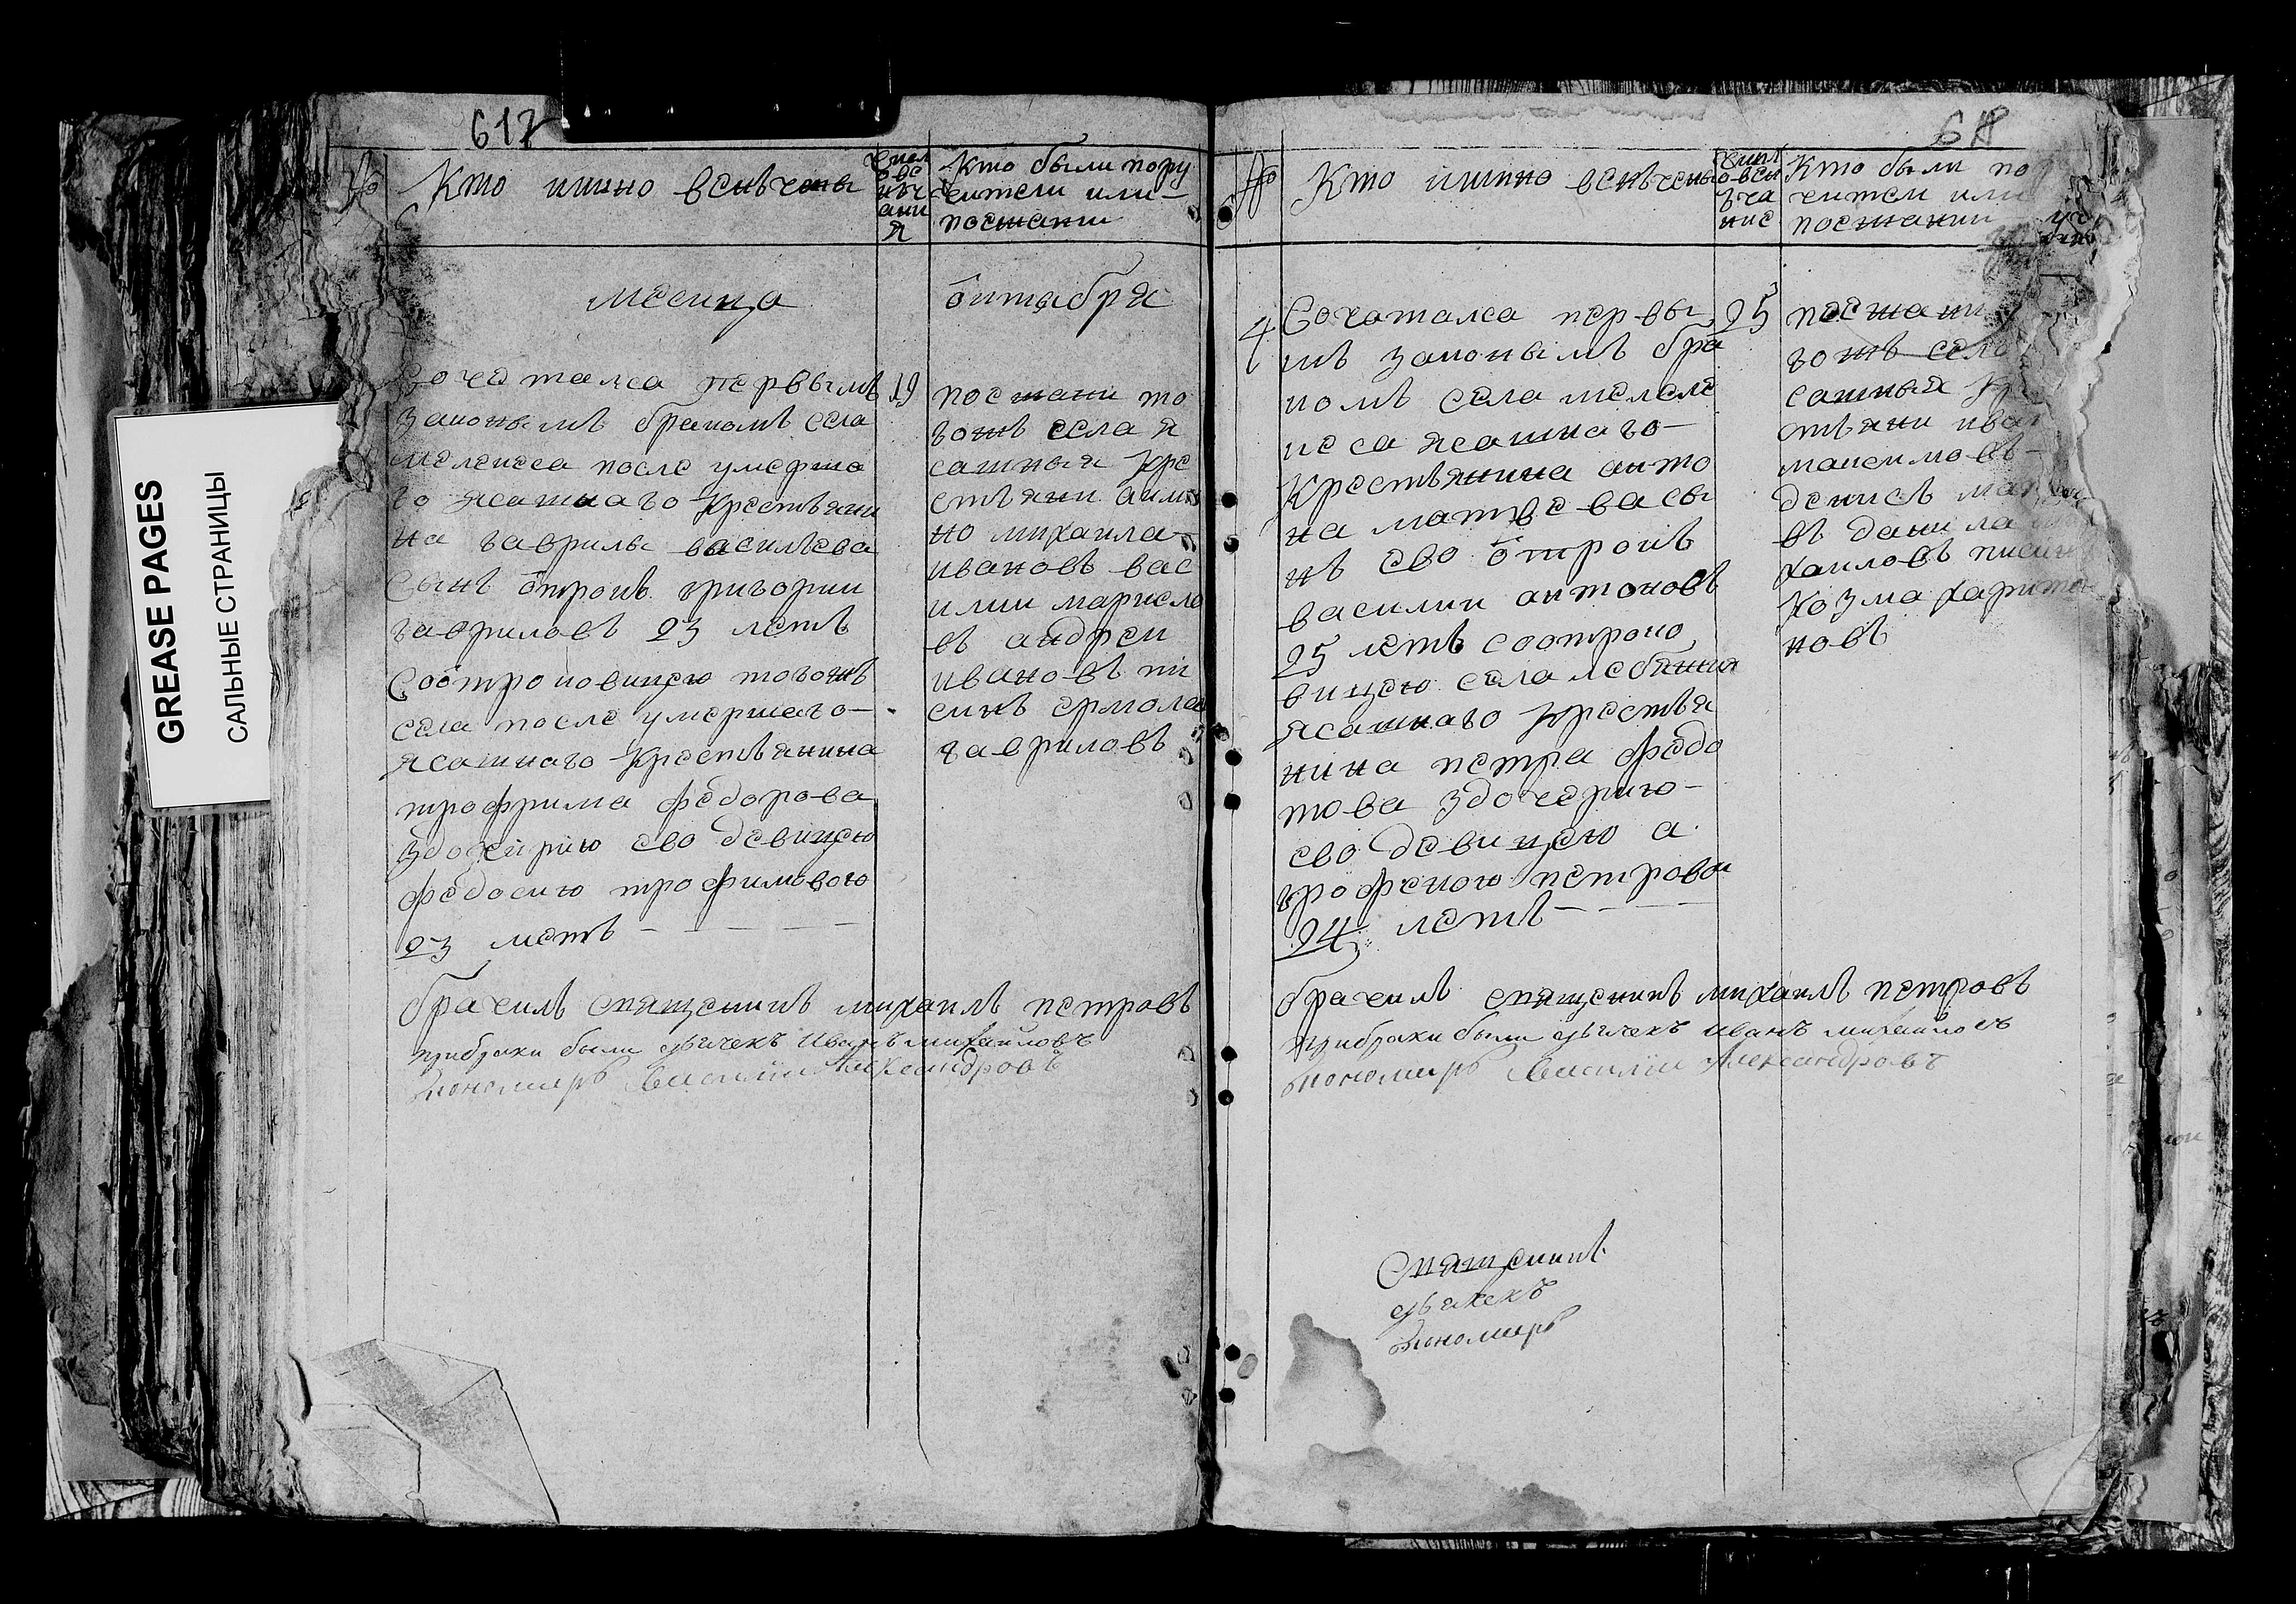 GREASE PAGES
САЛЬНЫЕ СТРАНИЦЫ
617
№
Кто имино венчены
числ
о вс
нъч
ани
я
Кто были пору
читеси или
поежани
месица
октабря
Сочеталса первымъ
законымъ бракомъ села
мелекеса после умерша
го ясашнаго крестьяни
на гаврилы василъева
сынъ отрокъ григории
гавриловъ 23 летъ
Соотроковицею тогожъ
села после умершаго
ясашнаго крестьянина
трофима федорова
здочерию ево девицею
федосию трофимовою
23 летъ
19
поежани то
гожъ села я
сашныя кре
стьяни аким
но михаила
ивановъ вас
илии марксло
въ андреи
ивановъ пи
синъ ермола
гавриловъ
брачилъ свящсникъ михаилъ петровъ
прибраки были дьячекъ Иванъ михаиловъ
пономирь Василии Александровъ
618
№
Кто имино венчены
числ
о вен
зча
нис
Кто были по
читеси или
поежании
4
Сочоталса первы
мъ законымъ бра
комъ села мелеке
кеса ясашнаго
Крестьянина анто
на матве васы
нъ ево отрокъ
василии антоновъ
25 летъ соотроко
вицею села лебяжия
ясашнаго крестья
нина петра федо
това здочерию
ево девицею а
грофеною петрова
24 летъ
25
поежани
гожъ села
сашныя кре
стьяни иван
максимовъ
денисъ
въ данила
хаиловъ писинъ
козма харито
новъ
брачилъ свящсникъ михаилъ петровъ
прибраки были дьячекъ иванъ михаиловъ
пономирь Василии Александровъ
Свящсникъ
дьячекъ
пономирь